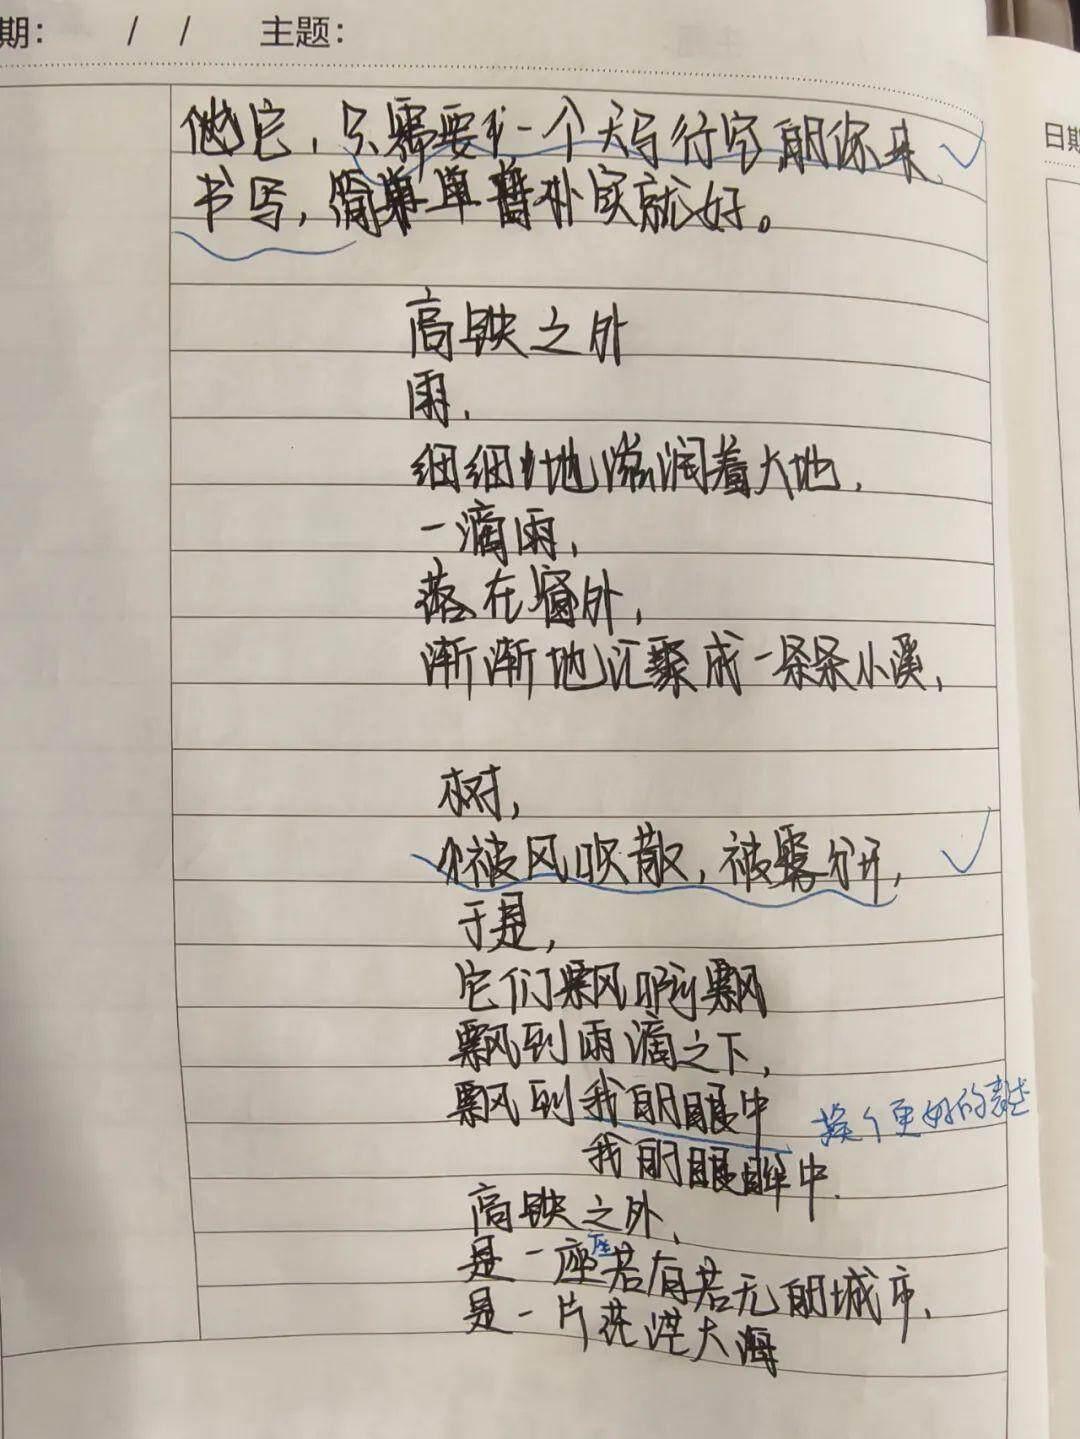 期： / / 主题：
日期
他它，只需要一个天马行空的你来
书写，简单单普朴实就好。
高铁之外
雨，
细细地滋润着大地，
一滴雨，
落在窗外，
渐渐地汇聚成一条条小溪，
树，
被风吹散，被雾分开，
于是，
它们飘啊飘
飘到雨滴之下，
飘到我的眼中 换个更好的表述
我的眼眸中.
高铁之外，
是一座座若有若无的城市，
是一片茫茫大海